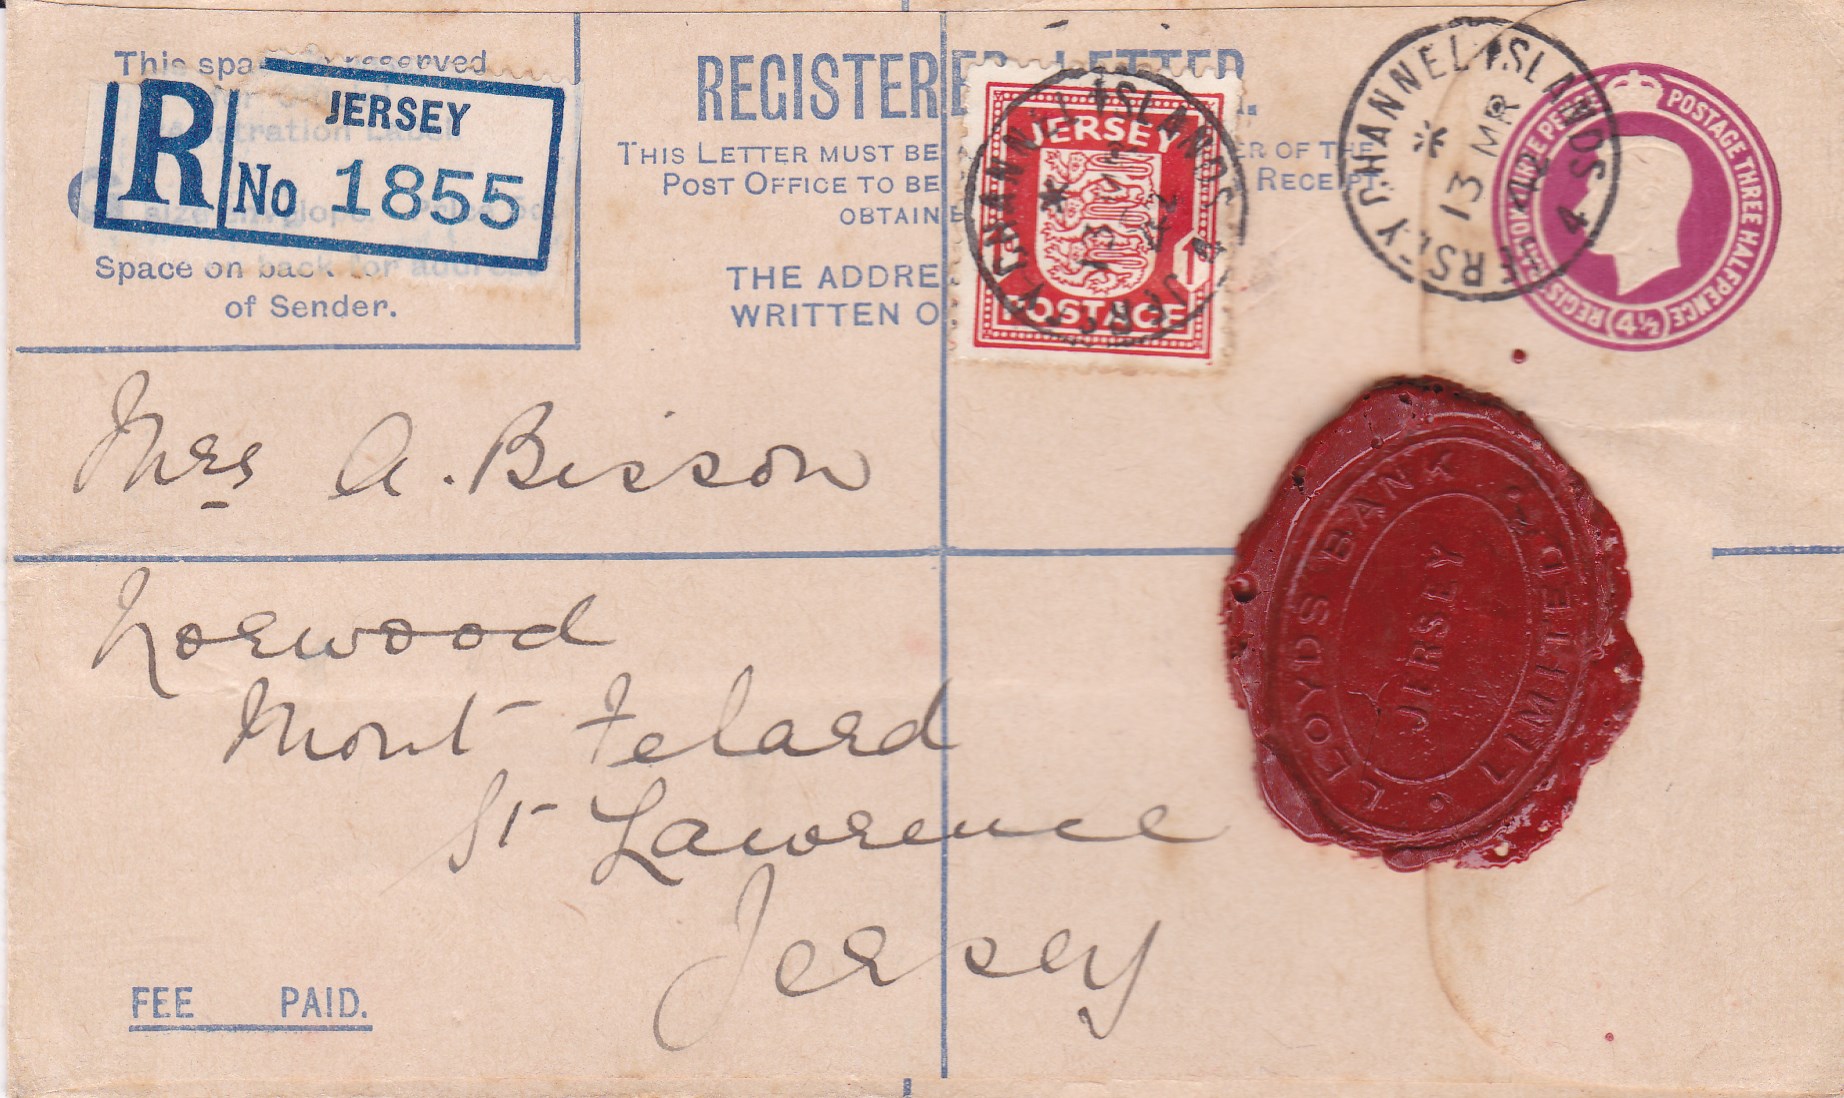 This spa reserved
Space on back for address
of Sender.
R
JERSEY
No 1855
REGISTERED LETTER.
THIS LETTER MUST BE ER OF THE
POST OFFICE TO BE RECEIPT
OBTAINE
THE ADDRE
WRITTEN O
JERSEY
1D
POSTAGE
JERSEY CHANNEL ISLANDS
13 MR
42
4
JERSEY CHANNEL ISLANDS
13 MR
42
4
POSTAGE THREE HALFPENCE
REGIS
4½
Mrs A. Bisson
Norwood
Mont Felard
St Lawrence
Jersey
LLOYDS BANK LIMITED
JERSEY
FEE PAID.